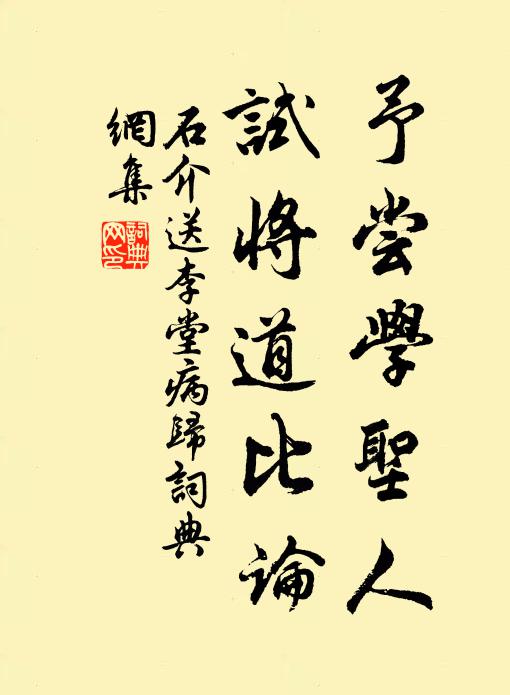 予尝學聖人
試將道比論
石介送李堂病歸詞典
網集
詞典
网印